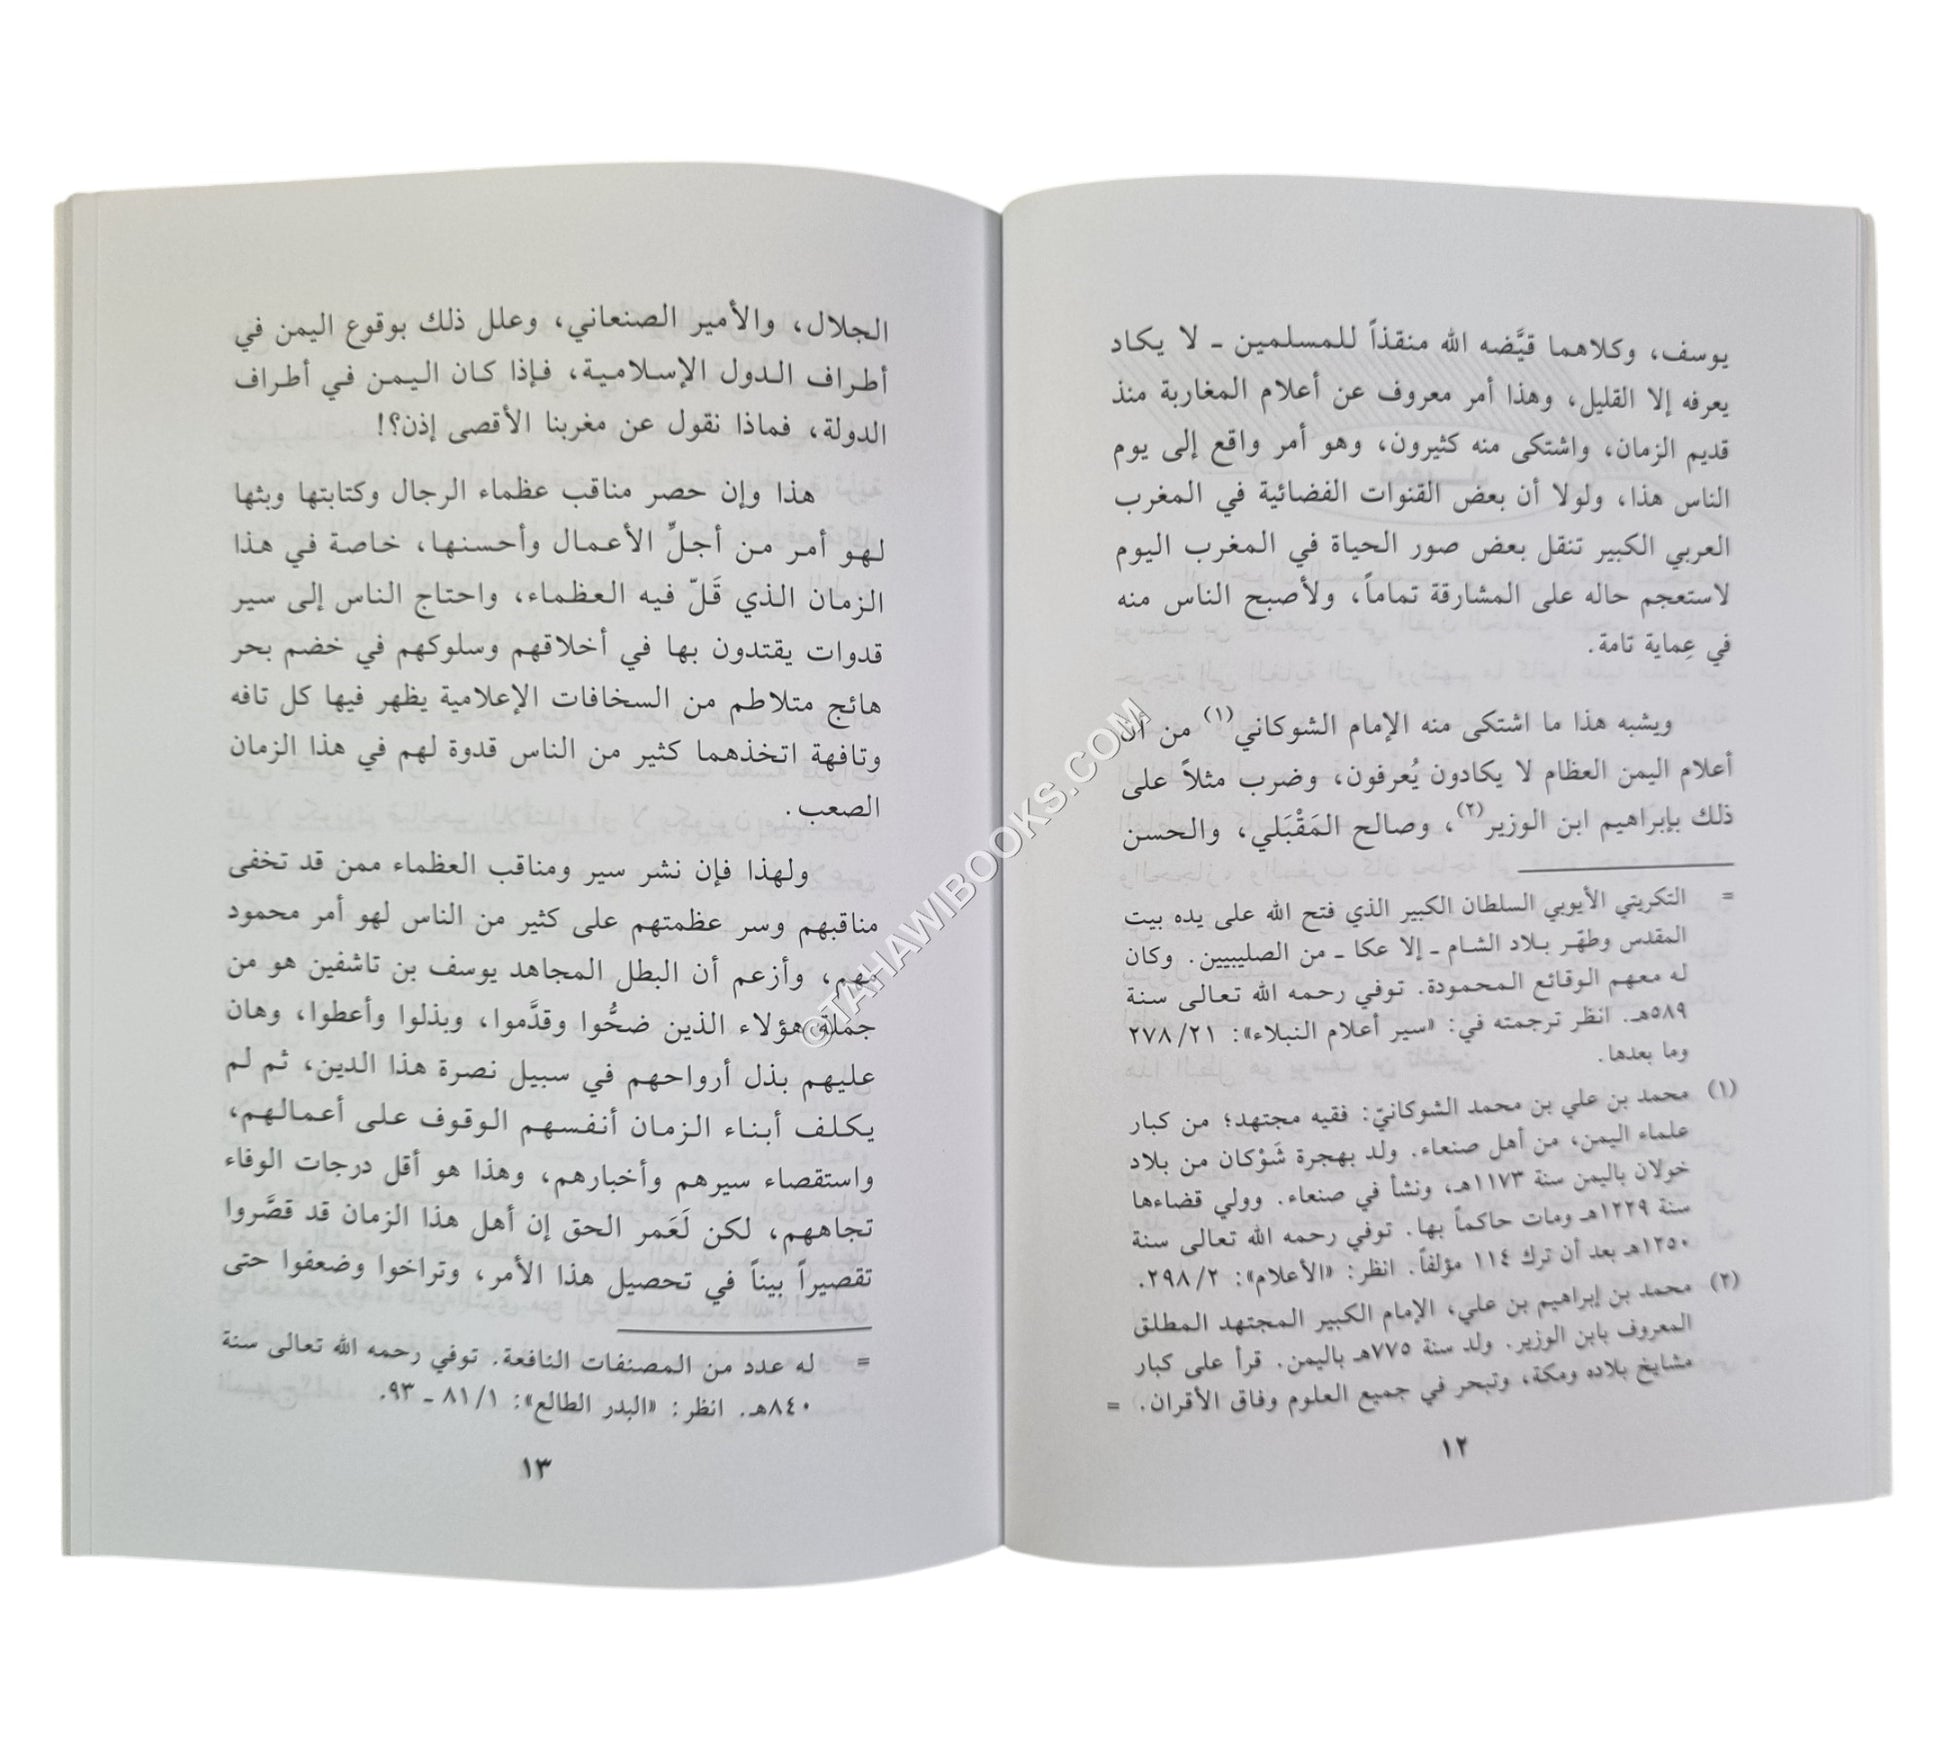 يوسف، وكلاهما قيَّضه الله منقذاً للمسلمين ـ لا يكاد
يعرفه إلا القليل، وهذا أمر معروف عن أعلام المغاربة منذ
قديم الزمان، واشتكى منه كثيرون، وهو أمر واقع إلى يوم
الناس هذا، ولولا أن بعض القنوات الفضائية في المغرب
العربي الكبير تنقل بعض صور الحياة في المغرب اليوم
لاستعجم حاله على المشارقة تماماً، ولأصبح الناس منه
في عِماية تامة.
ويشبه هذا ما اشتكى منه الإمام الشوكاني(١) من أن
أعلام اليمن العظام لا يكادون يُعرفون، وضرب مثلاً على
ذلك بإبراهيم ابن الوزير(٢)، وصالح المَقْبَلي، والحسن
= التكريتي الأيوبي السلطان الكبير الذي فتح الله على يده بيت
المقدس وطهّر بلاد الشام ـ إلا عكا ـ من الصليبيين. وكان
له معهم الوقائع المحمودة. توفي رحمه الله تعالى سنة
٥٨٩هـ. انظر ترجمته في: «سير أعلام النبلاء»: ٢٧٨/٢١
وما بعدها.
(١) محمد بن علي بن محمد الشوكانيّ: فقيه مجتهد؛ من كبار
علماء اليمن، من أهل صنعاء. ولد بهجرة شَوْكان من بلاد
خولان باليمن سنة ١١٧٣هـ، ونشأ في صنعاء. وولي قضاءها
سنة ١٢٢٩هـ ومات حاكماً بها. توفي رحمه الله تعالى سنة
١٢٥٠هـ بعد أن ترك ١١٤ مؤلفاً. انظر: «الأعلام»: ٢٩٨/٢.
(٢) محمد بن إبراهيم بن علي، الإمام الكبير المجتهد المطلق
المعروف بابن الوزير. ولد سنة ٧٧٥هـ باليمن. قرأ على كبار
مشايخ بلاده ومكة، وتبحر في جميع العلوم وفاق الأقران. =
١٢
الجلال، والأمير الصنعاني، وعلل ذلك بوقوع اليمن في
أطراف الدول الإسلامية، فإذا كان اليمن في أطراف
الدولة، فماذا نقول عن مغربنا الأقصى إذن؟!
هذا وإن حصر مناقب عظماء الرجال وكتابتها وبثها
لهو أمر من أجلِّ الأعمال وأحسنها، خاصة في هذا
الزمان الذي قَلّ فيه العظماء، واحتاج الناس إلى سير
قدوات يقتدون بها في أخلاقهم وسلوكهم في خضم بحر
هائج متلاطم من السخافات الإعلامية يظهر فيها كل تافه
وتافهة اتخذهما كثير من الناس قدوة لهم في هذا الزمان
الصعب.
ولهذا فإن نشر سير ومناقب العظماء ممن قد تخفى
مناقبهم وسر عظمتهم على كثير من الناس لهو أمر محمود
مهم، وأزعم أن البطل المجاهد يوسف بن تاشفين هو من
جملة هؤلاء الذين ضحُّوا وقدَّموا، وبذلوا وأعطوا، وهان
عليهم بذل أرواحهم في سبيل نصرة هذا الدين، ثم لم
يكلف أبناء الزمان أنفسهم الوقوف على أعمالهم،
واستقصاء سيرهم وأخبارهم، وهذا هو أقل درجات الوفاء
تجاههم، لكن لَعَمر الحق إن أهل هذا الزمان قد قصَّروا
تقصيراً بيناً في تحصيل هذا الأمر، وتراخوا وضعفوا حتى
= له عدد من المصنفات النافعة. توفي رحمه الله تعالى سنة
٨٤٠هـ. انظر: «البدر الطالع»: ٨١/١ ـ ٩٣.
١٣
©TAHAWIBOOKS.COM